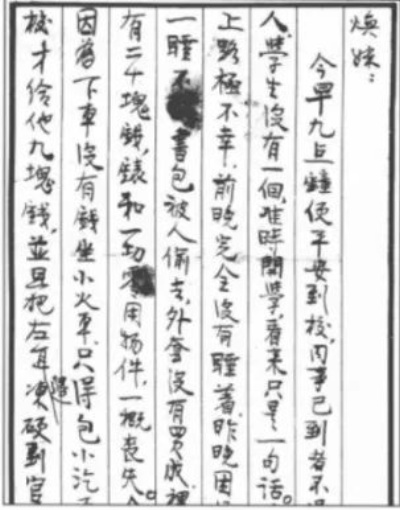 焕妹：
今早九点鐘便平安到校，同事已到者不
人，學生沒有一個，准時開學，看来只是一句話。
上路極不幸，前晚完全沒有睡着，昨晚困
一睡，不 書包被人偷去，外套沒有買成，裡
有二十塊錢，錶和一切零用物件，一概丧失。
因為下車沒有錢坐小火車，只得包小汽
校才给他九塊錢，並且把左耳凍硬，到官